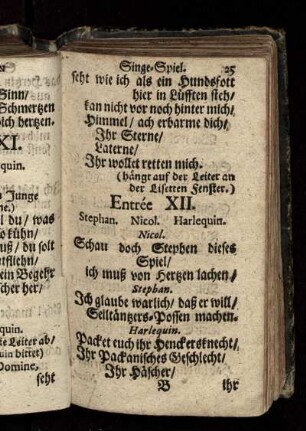 Sinn/
Schmertzen
ich hertzen.
XI.
quin.
Junge
ne.)
l du/ was
o kühn/
uß/ du solt
ntfliehn/
ein Begehr
scher her/
quin.
die Leiter ab/
uin bittet)
Domine,
seht
Singe-Spiel. 25
seht wie ich als ein Hundsfott
hier in Lüfften steh/
kan nicht vor noch hinter mich/
Himmel/ ach erbarme dich/
Ihr Sterne/
Laterne/
Ihr wollet retten mich.
(hängt auf der Leiter an
der Lisetten Fenster.)
Entrée XII.
Stephan. Nicol. Harlequin.
Nicol.
Schau doch Stephen dieses
Spiel/
ich muß von Hertzen lachen/
Stephan.
Ich glaube warlich/ daß er will/
Seiltäntzers-Possen machen.
Harlequin.
Packet euch ihr Henckersknecht/
Ihr Packanisches Geschlecht/
Ihr Häscher/
B ihr